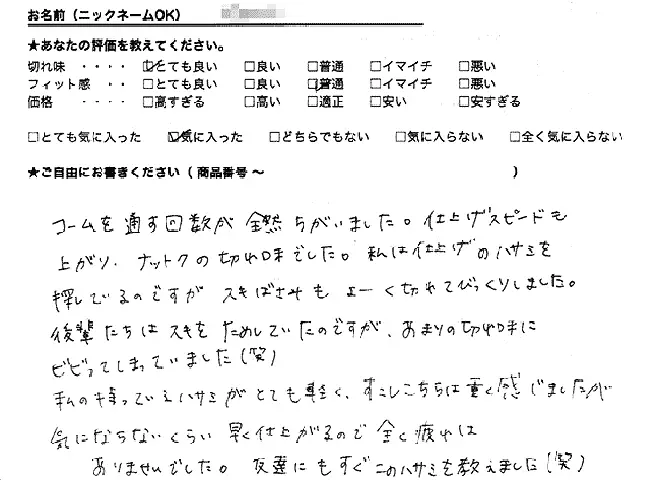 お名前（ニックネームOK）
★あなたの評価を教えてください。
切れ味 ・・・・ ☑とても良い □良い □普通 □イマイチ □悪い
フィット感 ・・ □とても良い □良い ☑普通 □イマイチ □悪い
価格 ・・・・ □高すぎる □高い □適正 □安い □安すぎる
□とても気に入った ☑気に入った □どちらでもない □気に入らない □全く気に入らない
★ご自由にお書きください（ 商品番号 ～ ）
コームを通す回数が全然ちがいました。仕上げスピードも
上がり、ナットクの切れ味でした。私は仕上げのハサミを
探しているのですがスキばさみもよーく切れてびっくりしました。
後輩たちはスキをためしていたのですが、あまりの切れ味に
ビビってしまっていました(笑)
私の持っているハサミがとても軽く、すこしこちらは重く感じましたが
気にならないくらい早く仕上がるので全く疲れは
ありませんでした。友達にもすぐこのハサミを教えました(笑)